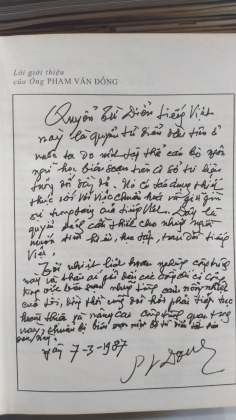 Lời giới thiệu
của Ông PHẠM VĂN ĐỒNG
Quyển Từ Điển tiếng Việt
này là quyển từ điển đầu tiên ở
nước ta do một tập thể cán bộ ngôn
ngữ học biên soạn trên cơ sở tư liệu
tương đối đầy đủ. Nó có tác dụng thiết
thực đối với việc chuẩn hoá và giữ gìn
sự trong sáng của tiếng Việt. Đây là
quyển sách cần thiết cho những người
muốn tìm hiểu, học tập, trau dồi tiếng
Việt.
Tôi nhiệt liệt hoan nghênh công trình
này và thân ái gửi đến các đồng chí có công
trong việc biên soạn những lời chúc nồng nhiệt
của tôi, đồng thời cũng đòi hỏi phải tiếp tục
hoàn thiện và nâng cao công trình quan trọng
này, chuẩn bị biên soạn một bộ từ điển
sau này.
Ngày 7-3-1987